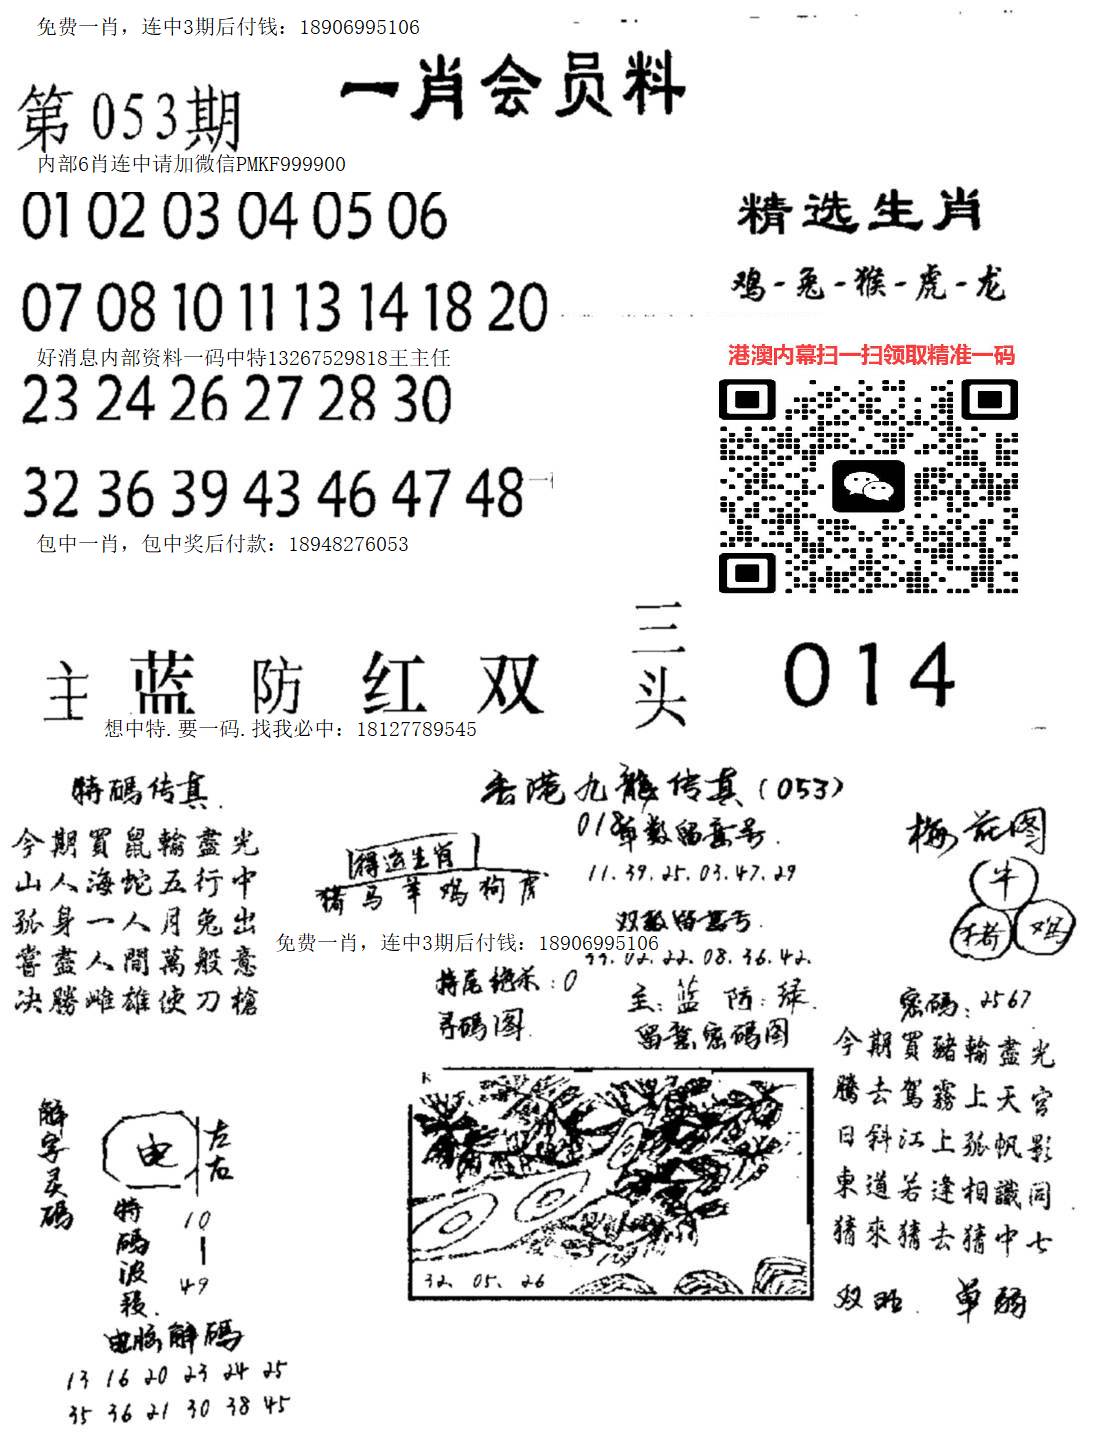 免费一肖，连中3期后付钱：18906995106
一肖会员料
第053期
内部6肖连中请加微信PMKF999900
01 02 03 04 05 06
精选生肖
鸡-兔-猴-虎-龙
07 08 10 11 13 14 18 20
港澳内幕扫一扫领取精准一码
好消息内部资料一码中特13267529818王主任
23 24 26 27 28 30
32 36 39 43 46 47 48
包中一肖，包中奖后付款：18948276053
主 蓝 防 红 双
三头 014
想中特.要一码.找我必中：18127789545
特碼传真.
今期買鼠輸盡光
山人海蛇五行中
孤身一人月兔出
嘗盡人間萬般意
决勝雌雄使刀槍
香港九龍传真(053)
018
单数留意号.
11.39.25.03.47.29
得运生肖
猪马羊鸡狗虎
双数留意号.
02.22.08.36.42.
免费一肖，连中3期后付钱：18906995106
特尾绝杀:0
主:蓝 防:绿.
寻码图.
留意密码图
32. 05. 26
梅花图
牛
猪
鸡
密码:2567
今期買豬輸盡光
騰去駕霧上天宮
日斜江上孤帆影
東道若逢相識同
猜來猜去猜中七
双 . 单弱
解字灵碼
电
左右
特碼波段
10
49
电脑解碼
13 16 20 23 24 25
35 36 21 30 38 45